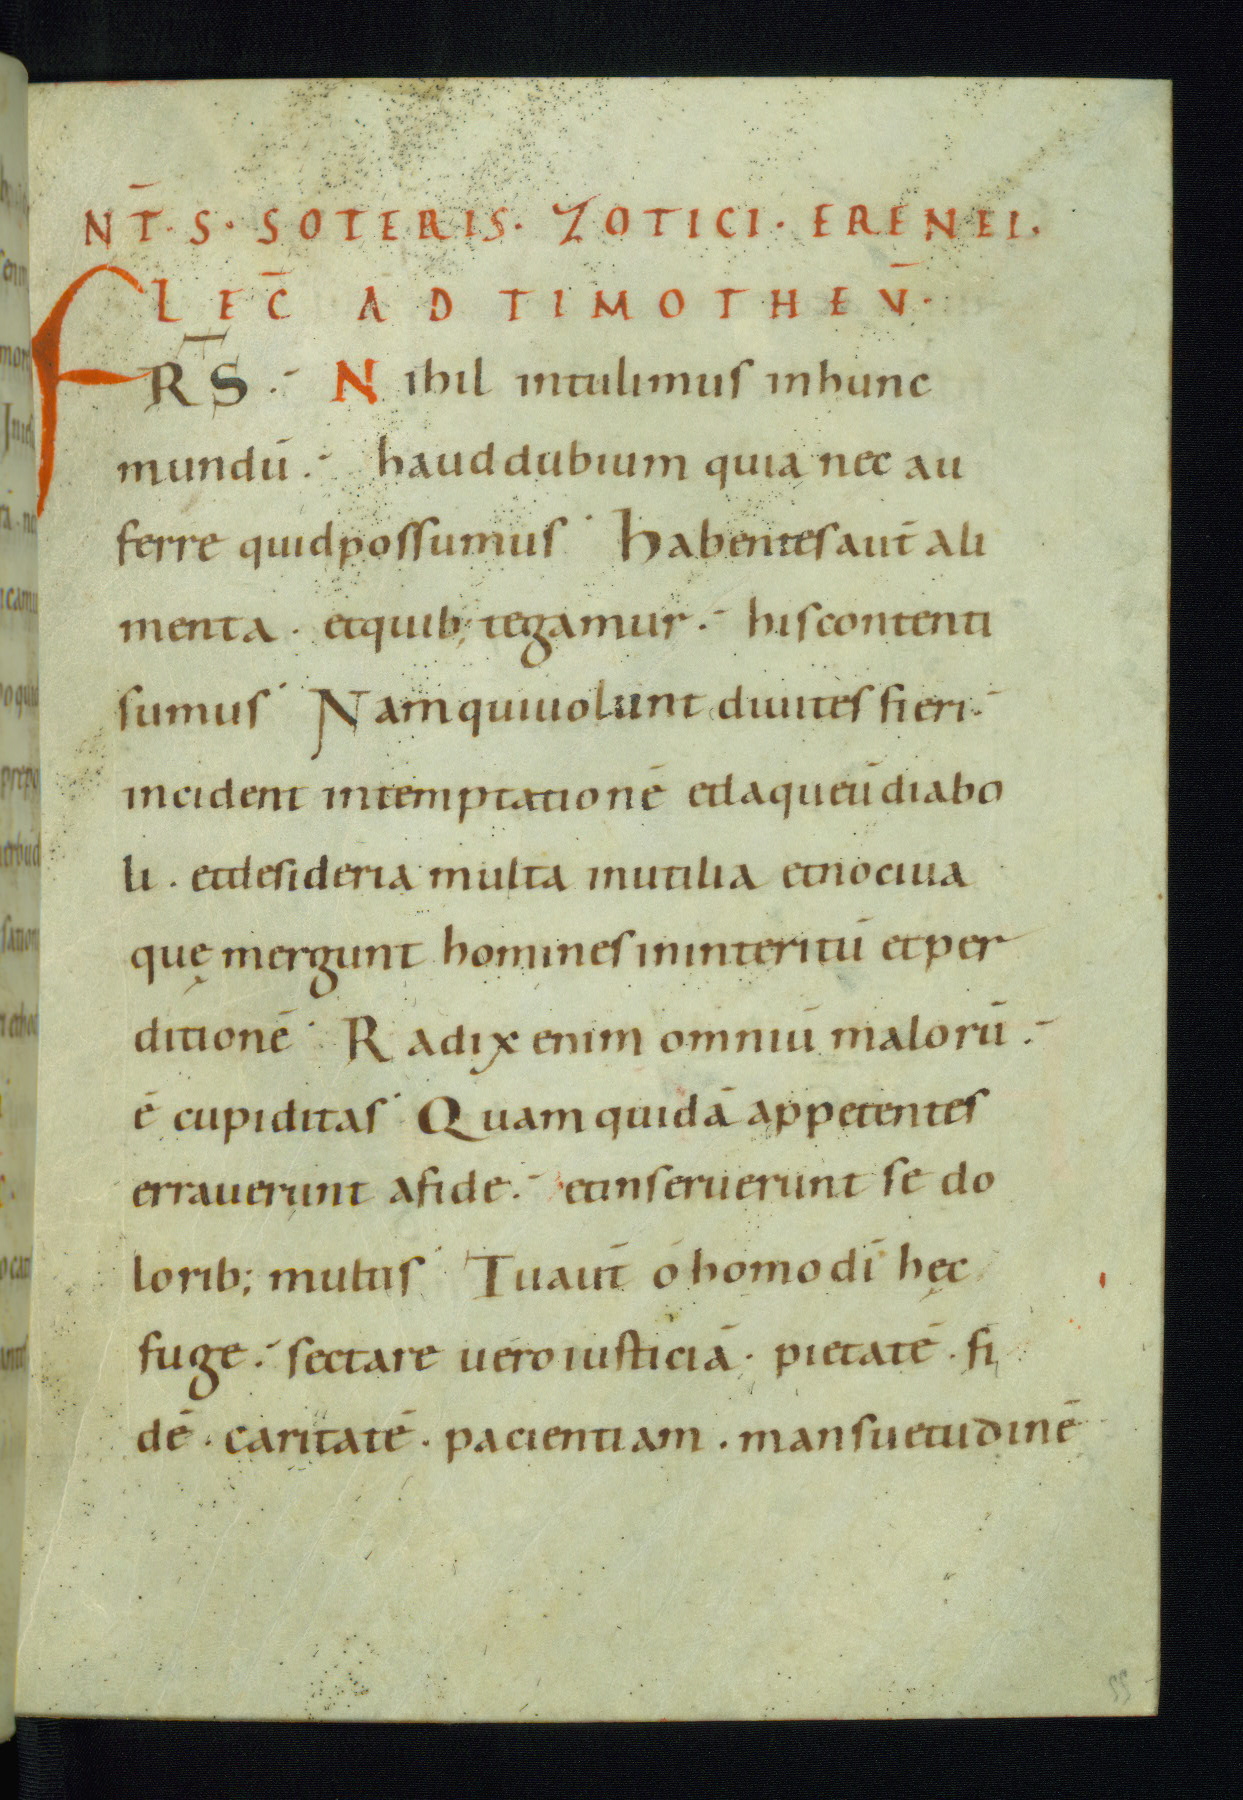 NT̄·S·SOTERIS·ZOTICI·ERENEI·
LEC̄ AD TIMOTHEV̄·
FRS̄·Nihil intulimus inhunc
mundū· hauddubium quia nec au
ferre quidpossumus· Habentesaut̄ ali
menta· etquib; tegamur· hiscontenti
sumus· Namquiuolunt diuites fieri·
incident intemptationē etlaqueū diabo
li· etdesideria multa inutilia etnociua
quę mergunt homines ininteritū etper
ditionē· Radix enim omniū malorū·
ē cupiditas· Quam quidā appetentes
errauerunt afide· etinseruerunt se do
lorib; multis· Tuaut̄ ó homo dī hęc
fuge· sectare uero iusticiā· pietatē· fi
dē· caritatē· pacientiam· mansuetudinē